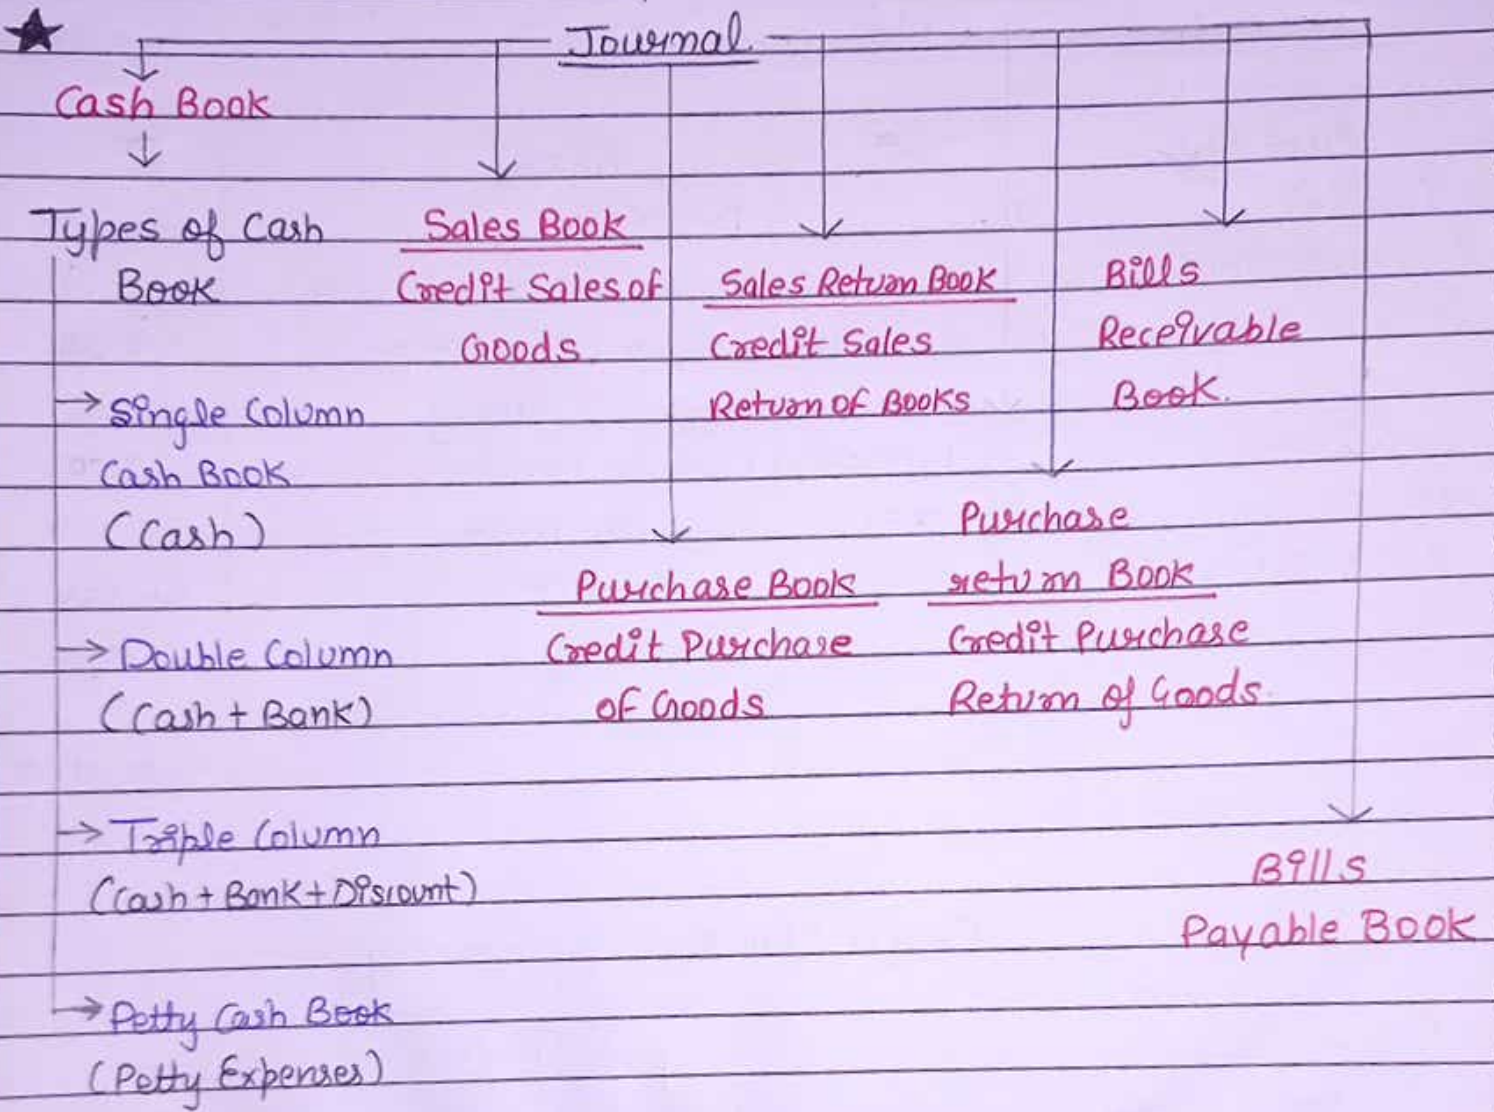 Journal.
Cash Book
Types of Cash
Book
Single Column
Cash Book
(Cash)
Double Column
(Cash + Bank)
Triple Column
(Cash + Bank + Discount)
Petty Cash Book
(Petty Expenses)
Sales Book
Credit Sales of
Goods
Purchase Book
Credit Purchase
of Goods
Sales Return Book
Credit Sales
Return of Books
Purchase
return Book
Credit Purchase
Return of Goods.
Bills
Receivable
Book.
Bills
Payable Book